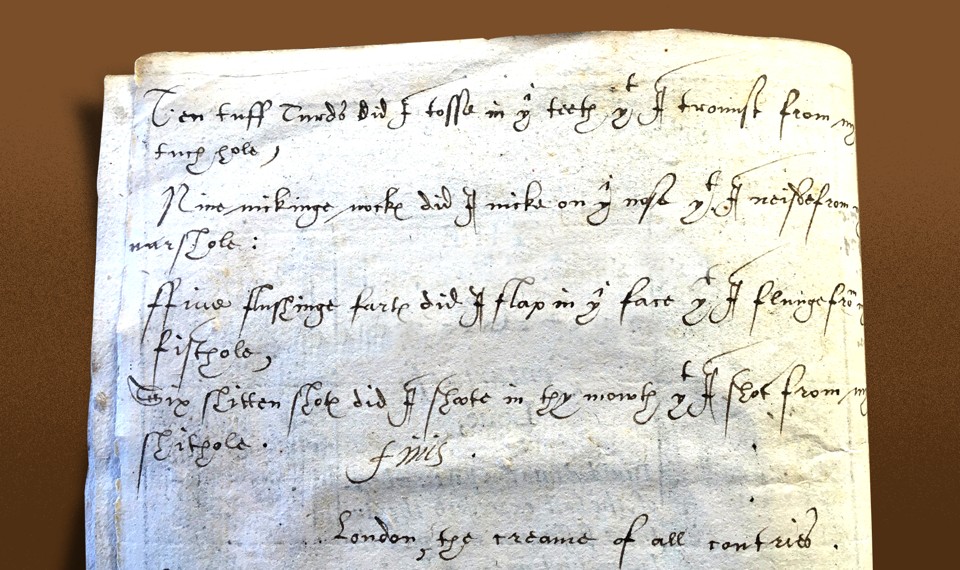 Ten tuff Turds did I tosse in yͬ teeth yͭ I tromist from my
tuch hole,
Nine nickinge nockes did I nicke on yͬ nose yͭ I neished from
narshole:
ffiue flushinge fartes did I flap in yͬ face yͭ I flunge frō my
fisthole,
Six shitten shotes did I shoote in thy mowth yͭ I shot from my
shithole.
finis.
London, the creame of all contries.